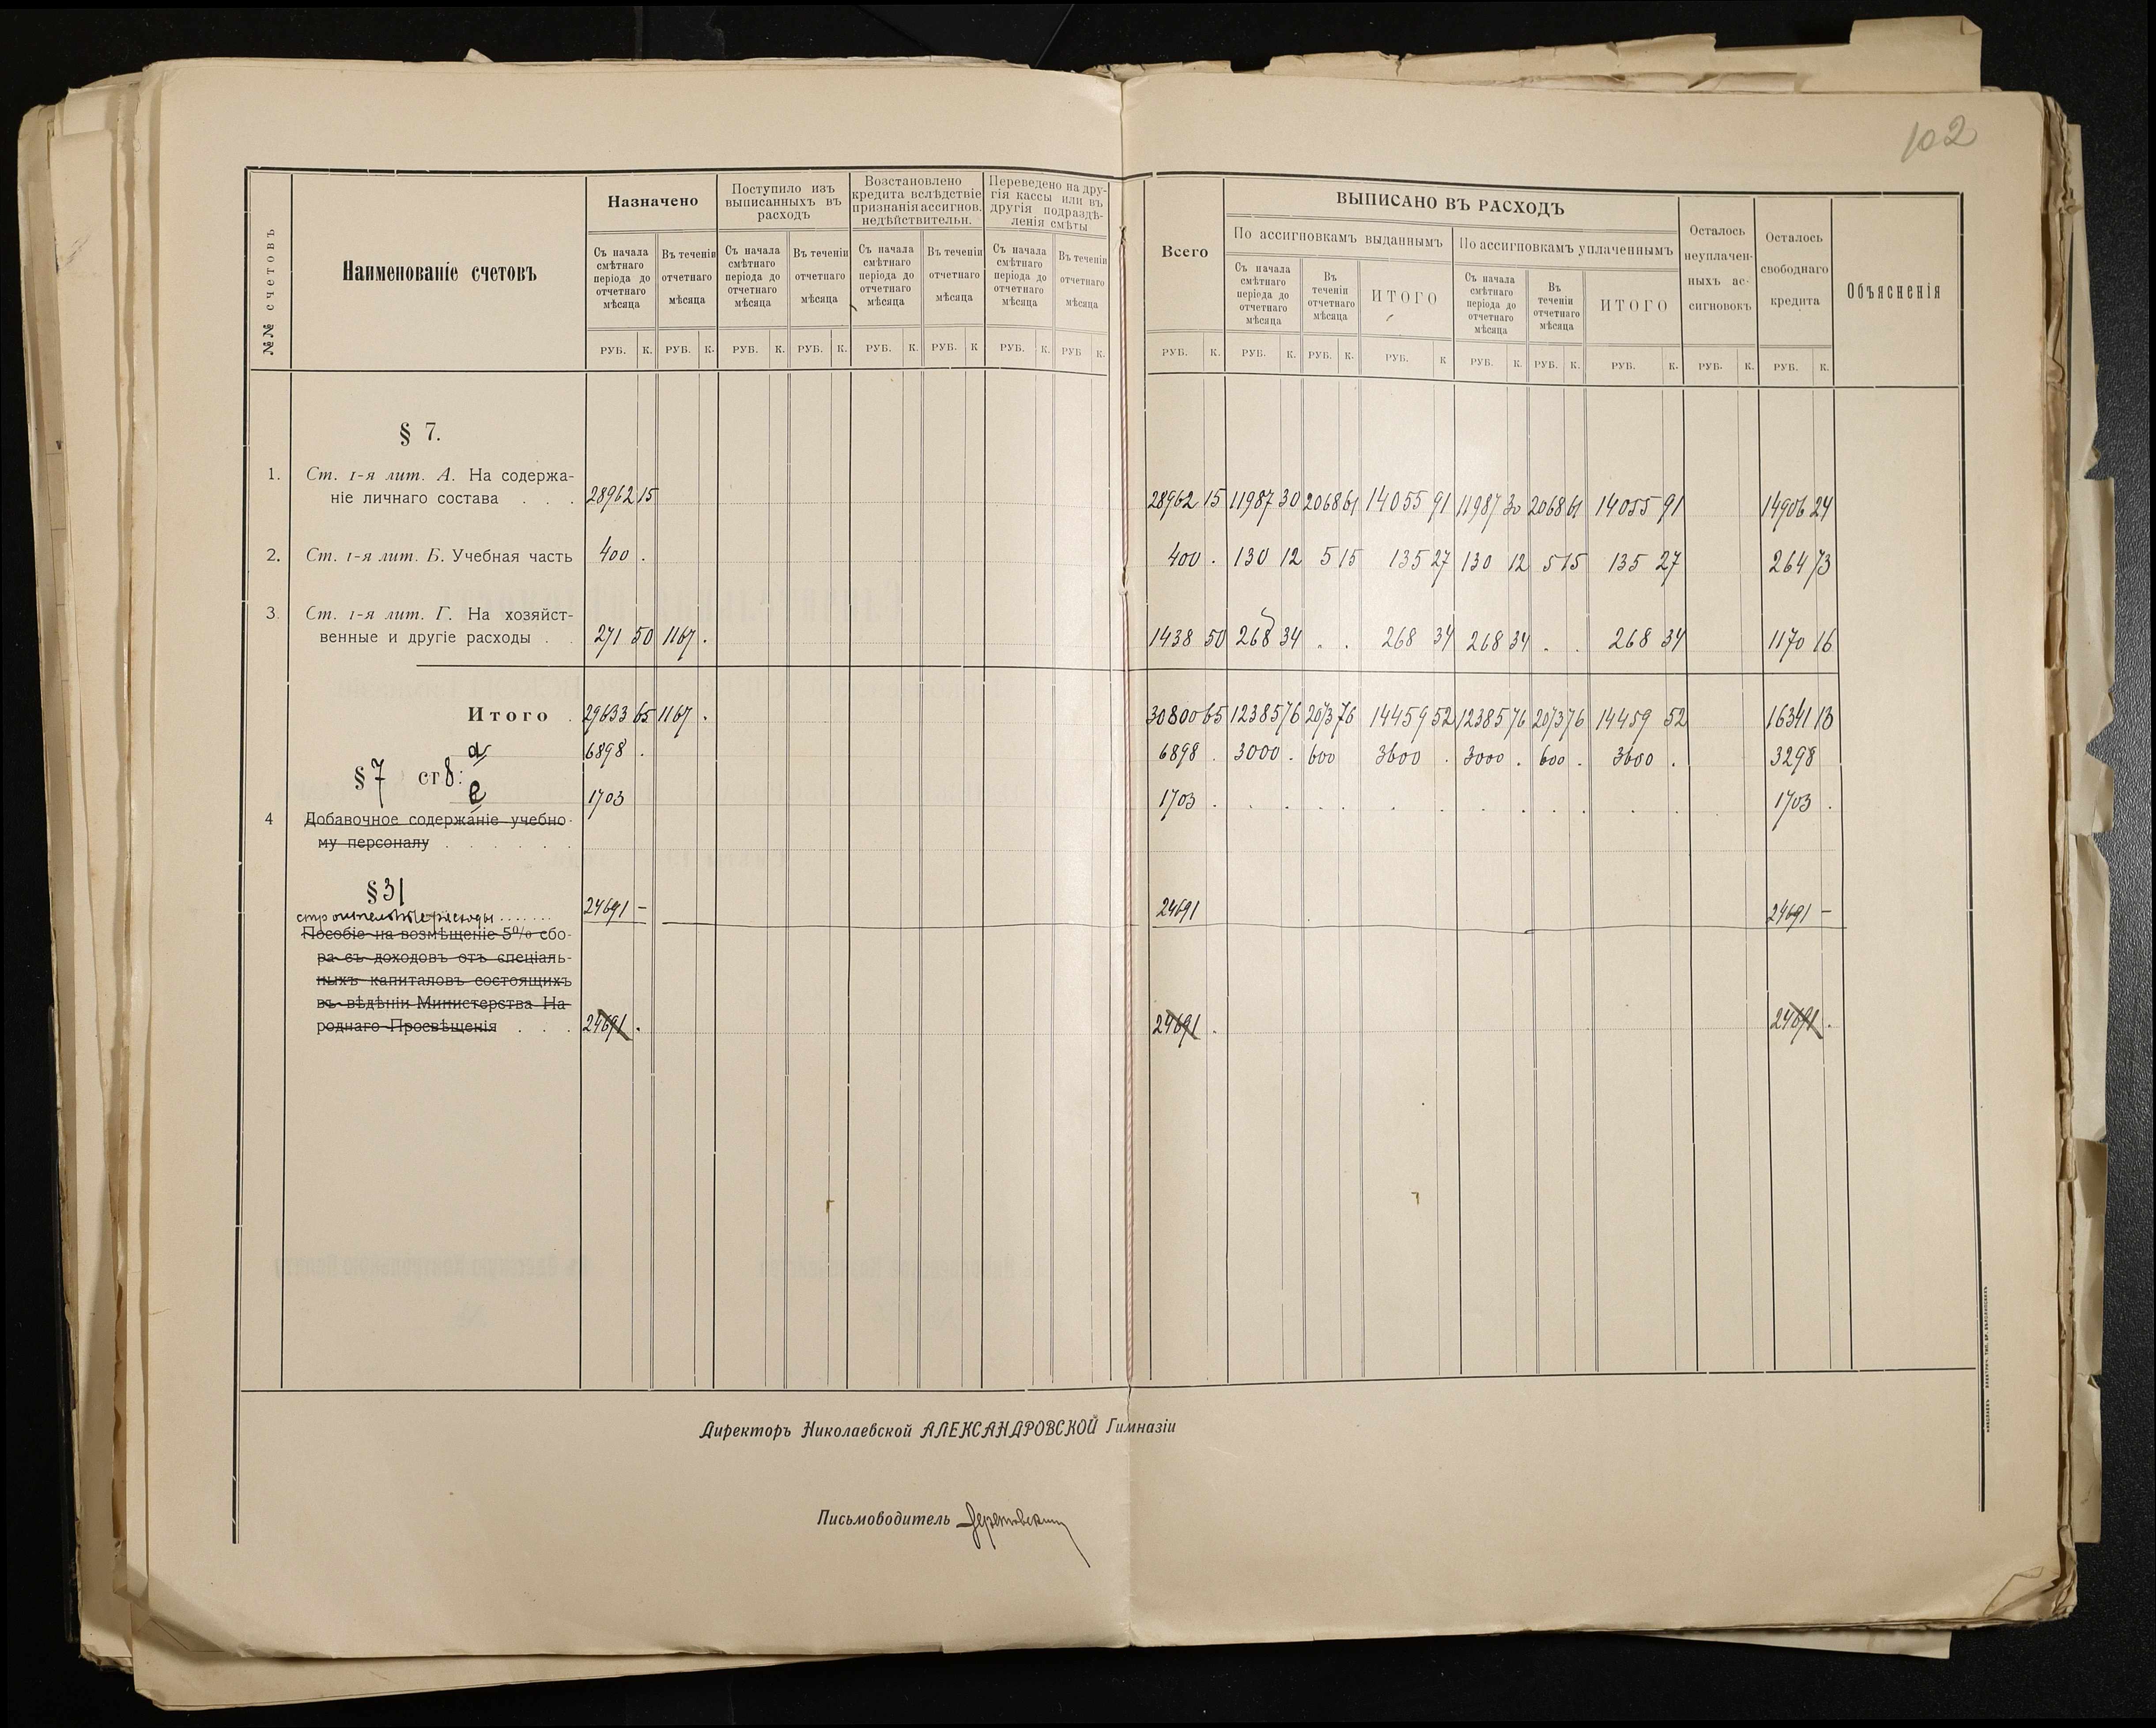 102
№№ счетовъ
Наименованіе счетовъ
Назначено
Поступило изъ выписанныхъ въ расходъ
Возстановлено кредита вслѣдствіе признанія ассигнов. недѣйствительн.
Переведено на другія кассы или въ другія подраздѣленія смѣты
Всего
ВЫПИСАНО ВЪ РАСХОДЪ
По ассигновкамъ выданнымъ
По ассигновкамъ уплаченнымъ
Осталось неуплаченныхъ ассигновокъ
Осталось свободнаго кредита
Объясненія
Съ начала смѣтнаго періода до отчетнаго мѣсяца
Въ теченіи отчетнаго мѣсяца
Съ начала смѣтнаго періода до отчетнаго мѣсяца
Въ теченіи отчетнаго мѣсяца
Съ начала смѣтнаго періода до отчетнаго мѣсяца
Въ теченіи отчетнаго мѣсяца
Съ начала смѣтнаго періода до отчетнаго мѣсяца
Въ теченіи отчетнаго мѣсяца
Съ начала смѣтнаго періода до отчетнаго мѣсяца
Въ теченіи отчетнаго мѣсяца
ИТОГО
Съ начала смѣтнаго періода до отчетнаго мѣсяца
Въ теченіи отчетнаго мѣсяца
ИТОГО
РУБ. К. РУБ. К. РУБ. К. РУБ. К. РУБ. К. РУБ. К РУБ. К. РУБ К. РУБ. К. РУБ. К. РУБ. К. РУБ. К РУБ. К. РУБ. К. РУБ. К. РУБ. К. РУБ. К.
§ 7.
1. Ст. 1-я лит. А. На содержа-
ніе личнаго состава . . . 28962 15 28962 15 11987 30 2068 61 14055 91 11987 30 2068 61 14055 91 14906 24
2. Ст. 1-я лит. Б. Учебная часть 400 . 400 . 130 12 5 15 135 27 130 12 5 15 135 27 264 73
3. Ст. 1-я лит. Г. На хозяйст-
венные и другіе расходы . . 271 50 1167 . 1438 50 268 34 . . 268 34 268 34 . . 268 34 1170 16
Итого . 29633 65 1167 . 30800 65 12385 76 2073 76 14459 52 12385 76 2073 76 14459 52 16341 13
а 6898 . 6898 . 3000 . 600 3600 . 3000 . 600 . 3600 . 3298
§ 7 ст 8:
в 1703 1703 . . . . . . . . . . . . . 1703 .
4 Добавочное содержаніе учебно-
му персоналу . . . . . .
§ 31
строительные расходы ....... 24691 – 24691 24691 –
Пособіе на возмѣщеніе 5% сбо-
ра съ доходовъ отъ спеціаль-
ныхъ капиталовъ состоящихъ
въ вѣдѣніи Министерства На
роднаго Просвѣщенія . . . 24691 . 24691 . 24691 .
Директоръ Николаевской АЛЕКСАНДРОВСКОЙ Гимназіи
Письмоводитель